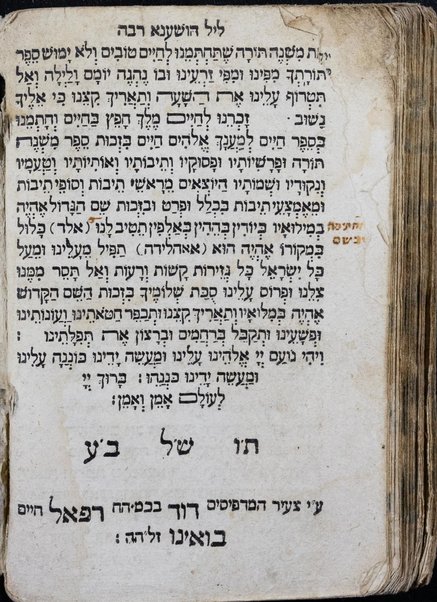 ליל הושענא רבה
משנה תורה שתחתמנו לחיים טובים ולא ימוש ספר
תורתך מפינו ומפי זרעינו ובו נהגה יומם ולילה ואל
תטרוף עלינו את השעה ותאריך קצנו כי אליך
נשוב ׃ זכרנו לחיים מלך חפץ בחיים וחתמנו
בספר חיים למענך אלהים חיים בזכות ספר משנה
תורה ופרשיותיו ופסוקיו ותיבותיו ואותיותיו וטעמיו
ונקודיו ושמותיו היוצאים מראשי תיבות וסופי תיבות
ומאמצעי תיבות בכלל ופרט ובזכות שם הגדול אהיה
במילואיו ביודין בההין באלפין תטיב לנו (אלד) כלול
במקורו אהיה הוא (אאהלידה) תפיל מעלינו ומעל
כל ישראל כל גזירות קשות ורעות ואל תסר ממנו
צלנו ופרוס עלינו סכת שלומיך בזכות השם הקדוש
אהיה במלואיו ותאריך קצנו ותכפר חטאתינו ועונותינו
ופשעינו ותקבל ברחמים וברצון את תפלתינו ׃
ויהי נועם יי אלהינו עלינו ומעשה ידינו כוננה עלינו
ומעשה ידינו כוננהו ׃ ברוך יי
לעולם אמן ואמן ׃
ת'ו ש'ל ב'ע
ע'י צעיר המדפיסים דוד בכמ'הח רפאל חיים
בואינו זל'הה ׃